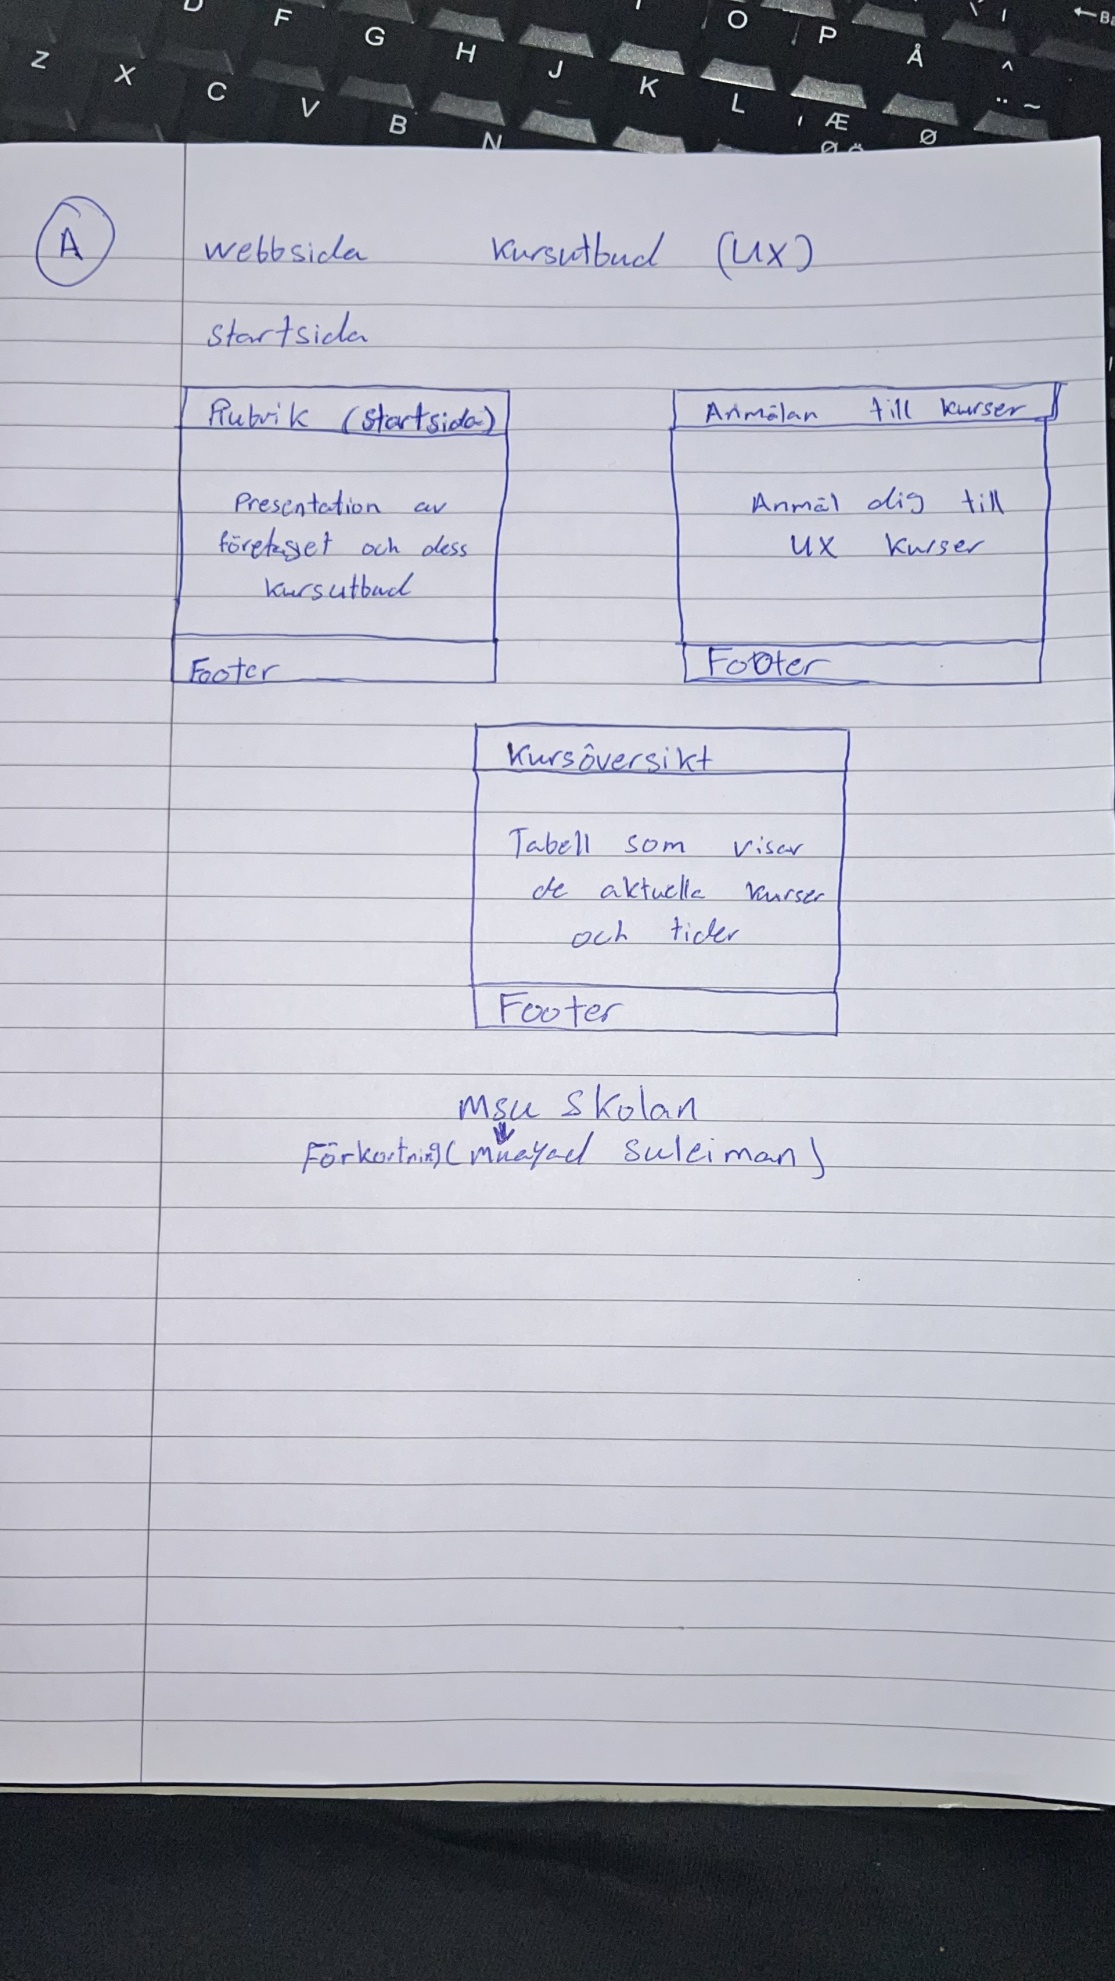 D F G H J K L O P Å ^ ¨ ~ ← Ba
Z X C V B N Æ Ø
A
webbsida kursutbud (UX)
startsida
Rubrik (startsida)
Presentation av
företaget och dess
kursutbud
Footer
Anmälan till kurser
Anmäl dig till
UX kurser
Footer
Kursöversikt
Tabell som visar
de aktuella kurser
och tider
Footer
MSU Skolan
Förkortning (muayad suleiman)